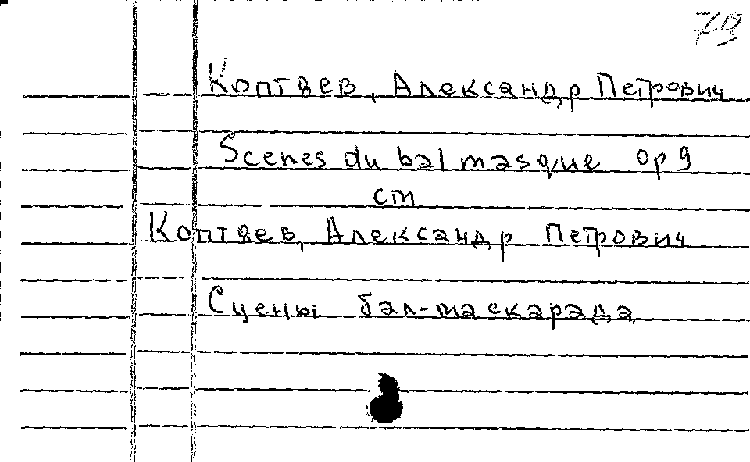 79
Коптяев, Александр Петрович
Scenes du bal masque op 9
cm
Коптяев, Александр Петрович
Сцены бал-маскарада